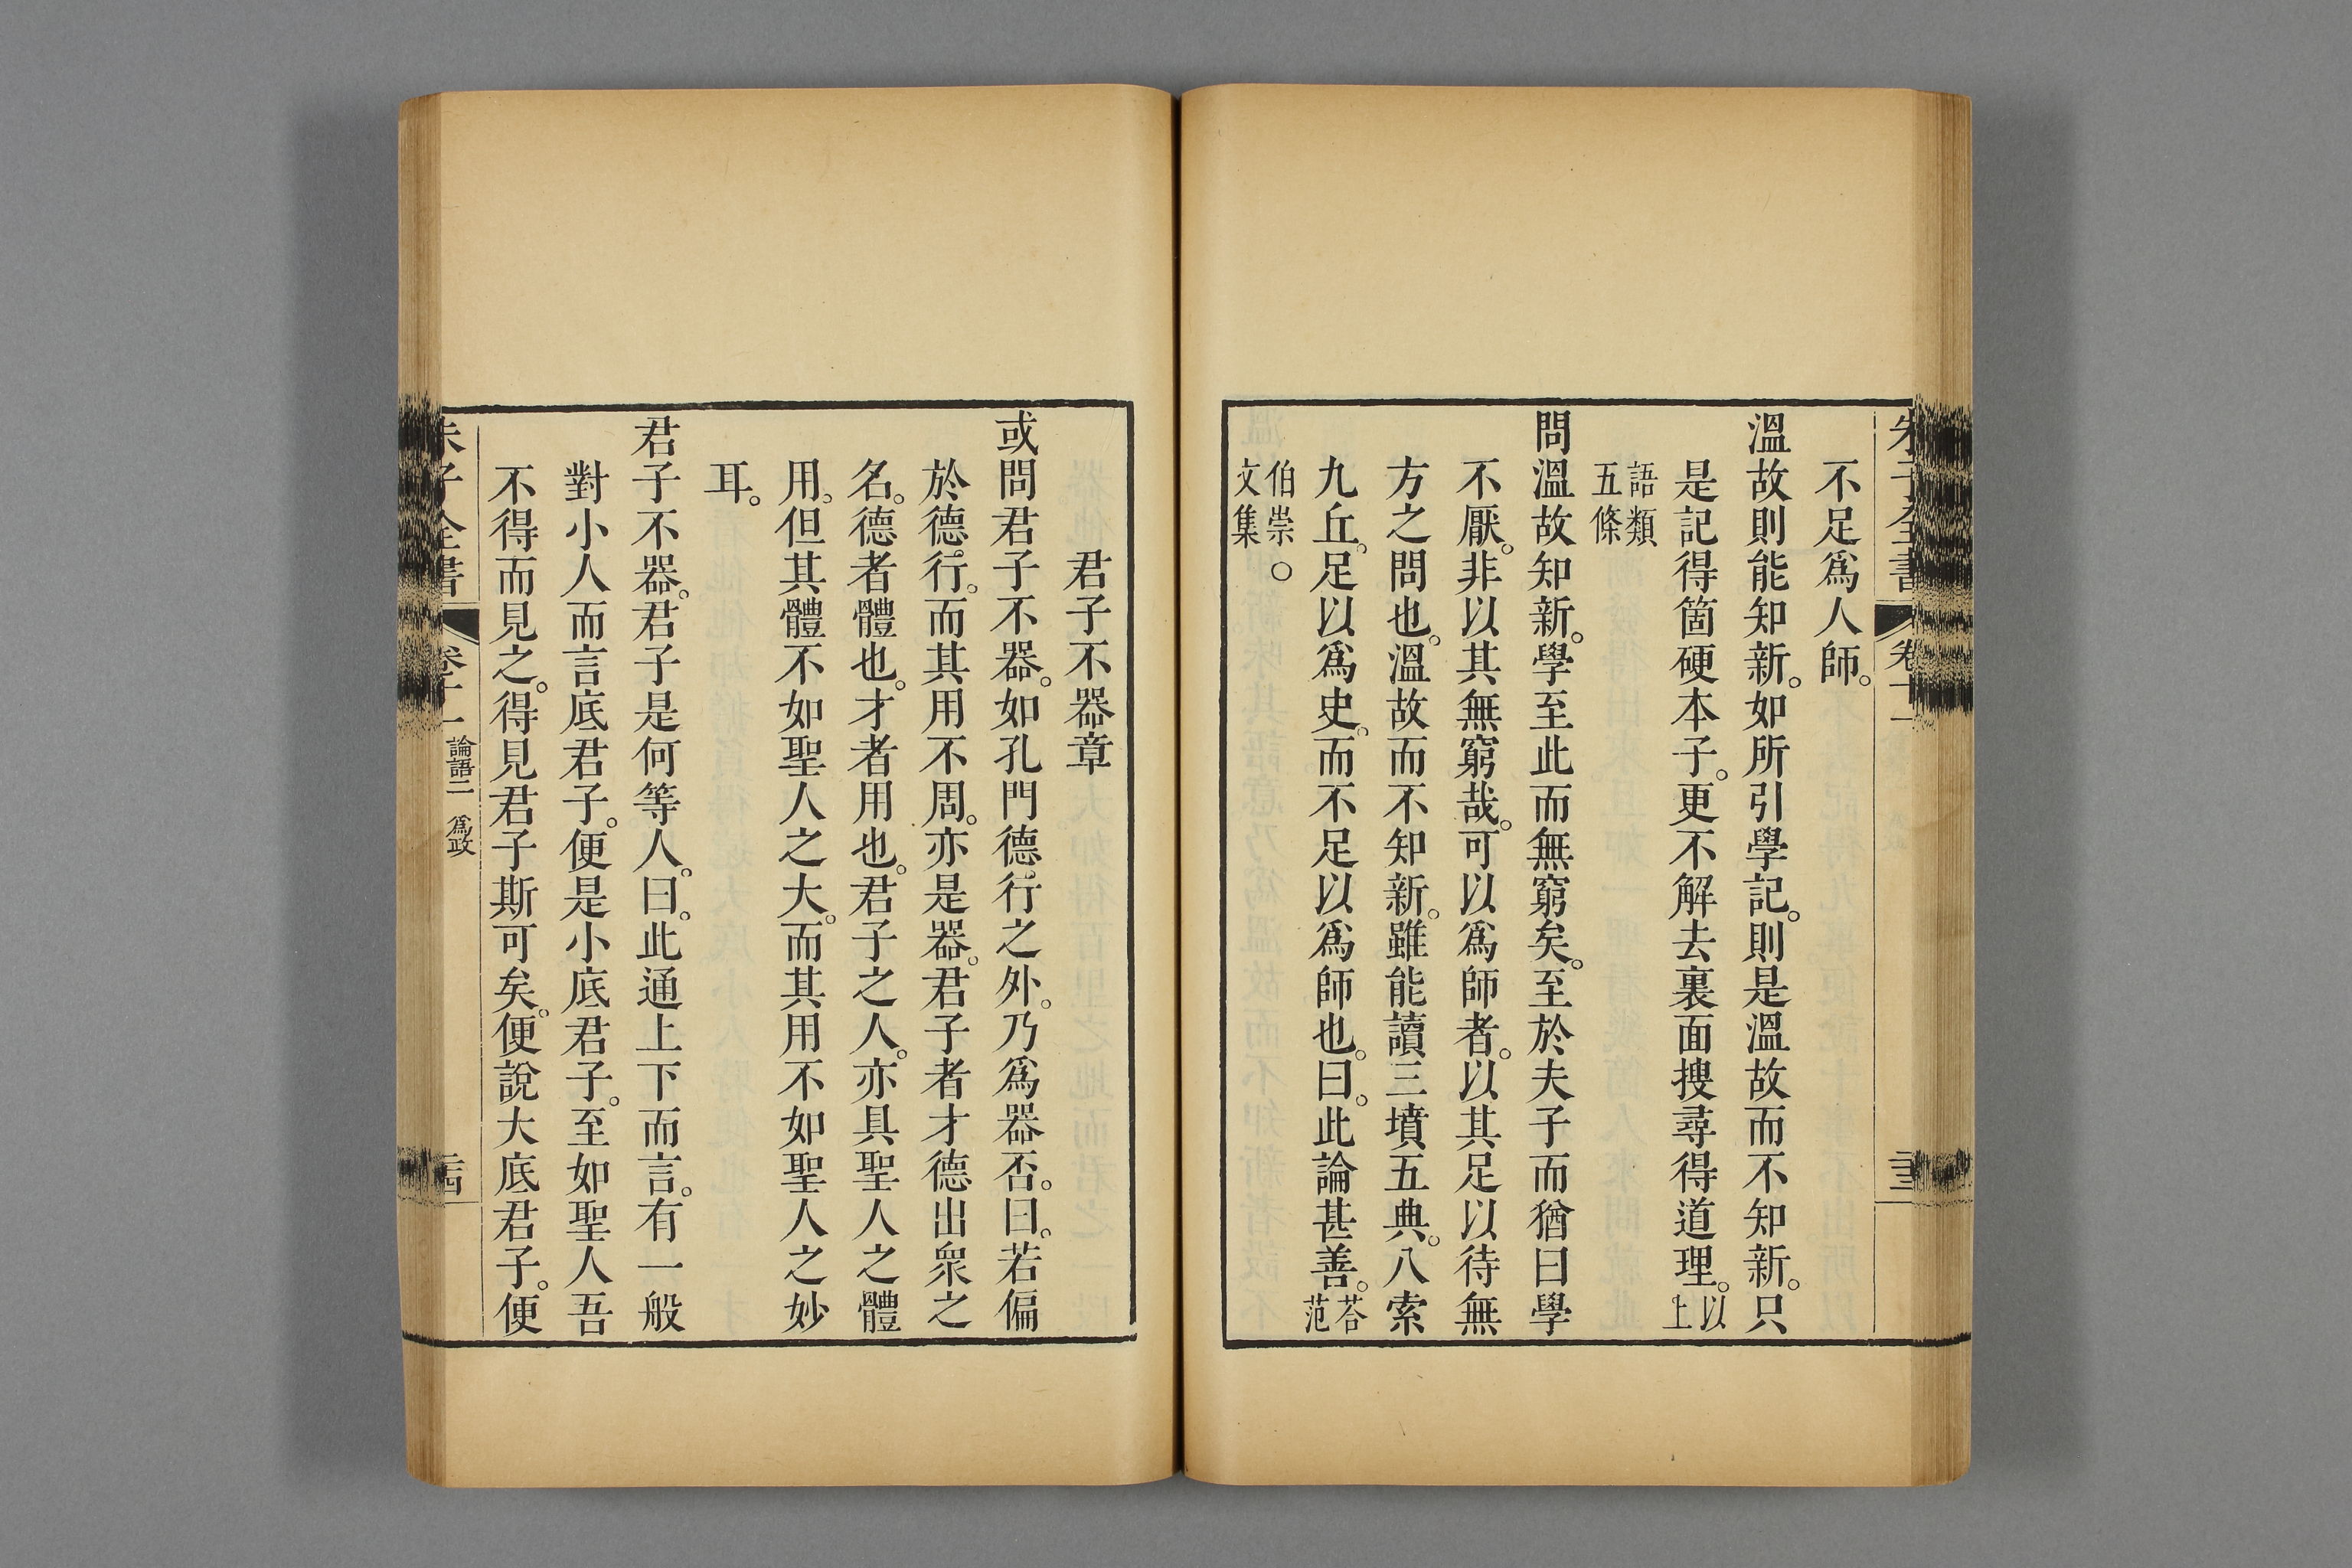 朱子全書 卷十一 二十三
不足爲人師。
溫故則能知新。如所引學記。則是溫故而不知新。只
是記得箇硬本子。更不解去裏面搜尋得道理。以上
語類五條
問溫故知新。學至此而無窮矣。至於夫子而猶曰學
不厭。非以其無窮哉。可以爲師者。以其足以待無
方之問也。溫故而不知新。雖能讀三墳五典。八索
九丘。足以爲史。而不足以爲師也。曰。此論甚善。荅范
伯崇○文集
君子不器章
或問君子不器。如孔門德行之外。乃爲器否。曰。若偏
於德行。而其用不周。亦是器。君子者才德出衆之
名。德者體也。才者用也。君子之人。亦具聖人之體
用。但其體不如聖人之大。而其用不如聖人之妙
耳。
君子不器。君子是何等人。曰。此通上下而言。有一般
對小人而言底君子。便是小底君子。至如聖人吾
不得而見之。得見君子斯可矣。便說大底君子。便
朱子全書 卷十一 論語二 爲政 二十四